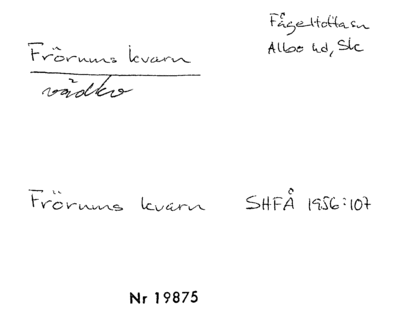 Fågeltofta sn
Albo hd, Sk
Frörums kvarn
vädkv
Frörums kvarn SHFÅ 1956:107
Nr 19875